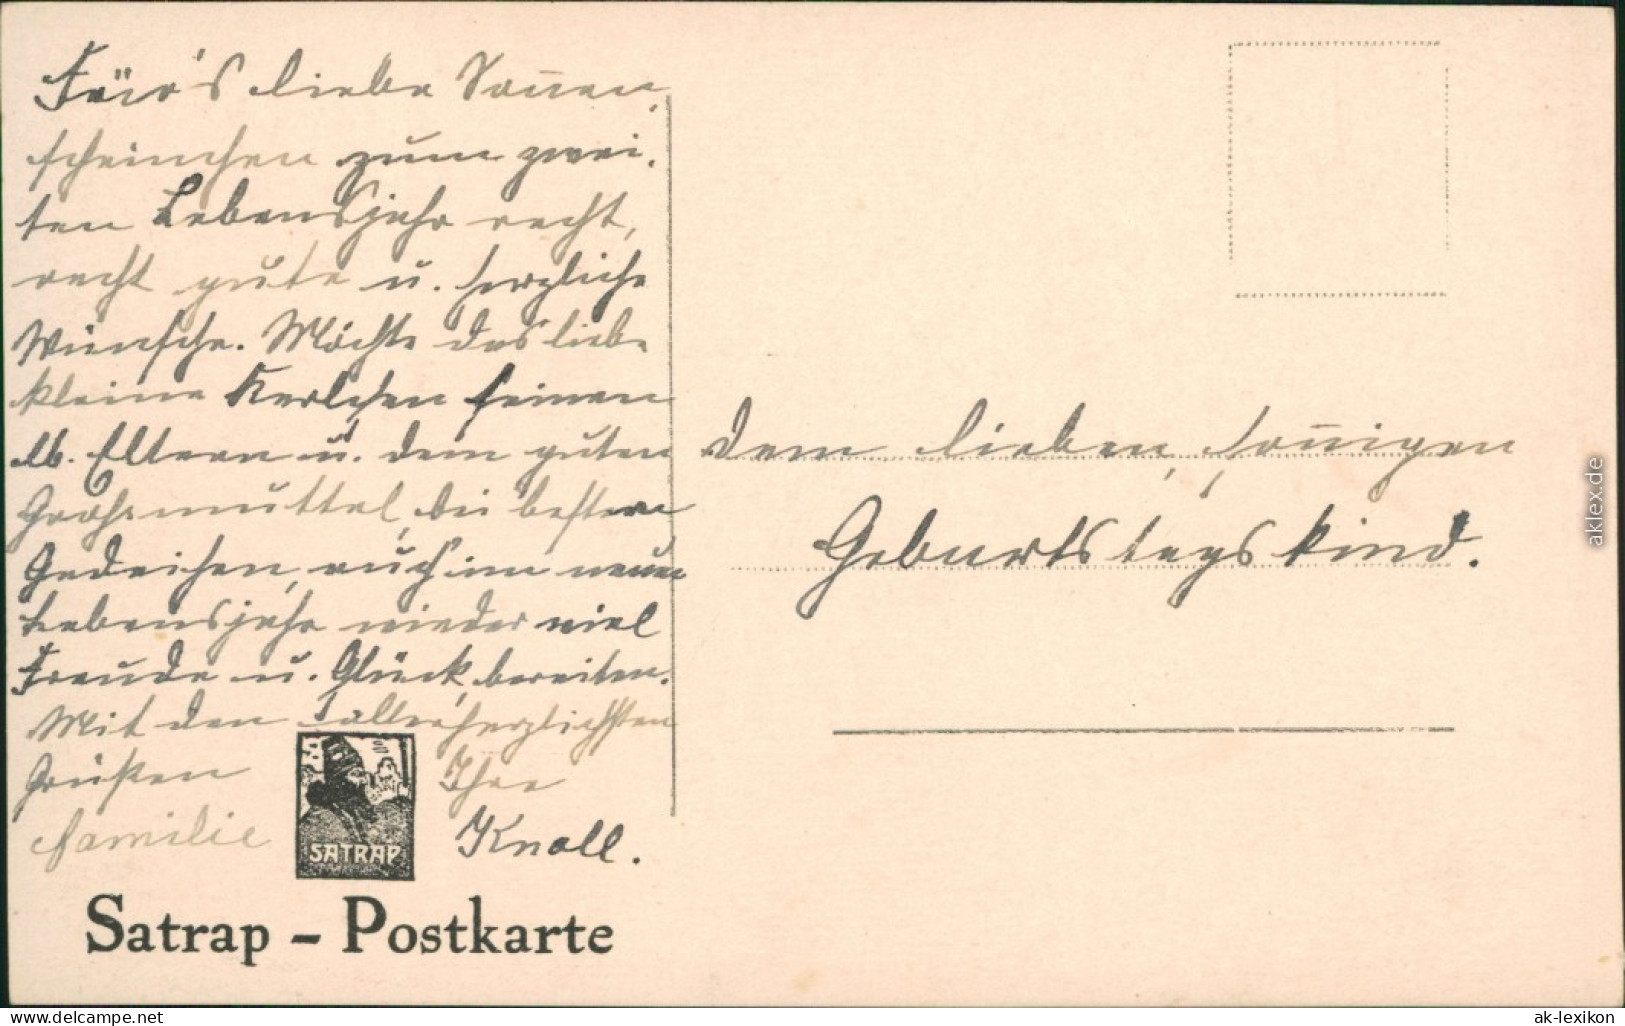 Für's liebe Sonnen-
scheinchen zum zwei-
ten Lebensjahr recht,
recht gute u. herzliche
Wünsche. Möchte das liebe
kleine Kerlchen seinen
lb. Eltern u. dem guten
Grossmuttel, bei bestem
Gedeihen, auch im neuen
Lebensjahr wieder viel
Freude u. Glück bereiten.
Mit den allerherzlichsten
Grüßen Ihre
Familie Knoll.
SATRAP
Satrap - Postkarte
Dem lieben, sonnigen
Geburtstagskind.
aklex.de
www.delcampe.net
ak-lexikon